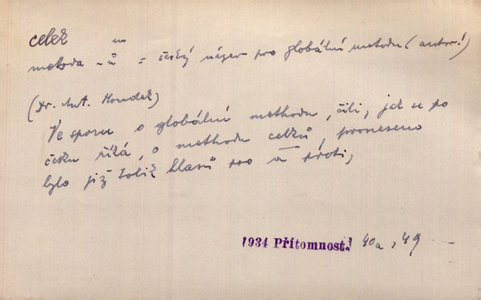 celek m
metoda -ů = český název pro globální metodu (autor!)
(Dr. Ant.
Ve sporu o globální methodu, čili, jak se po
česku říká, o methodu celků, proneseno
bylo již tolik hlasů pro a proti,
1934 Přítomnost. 40a, 49